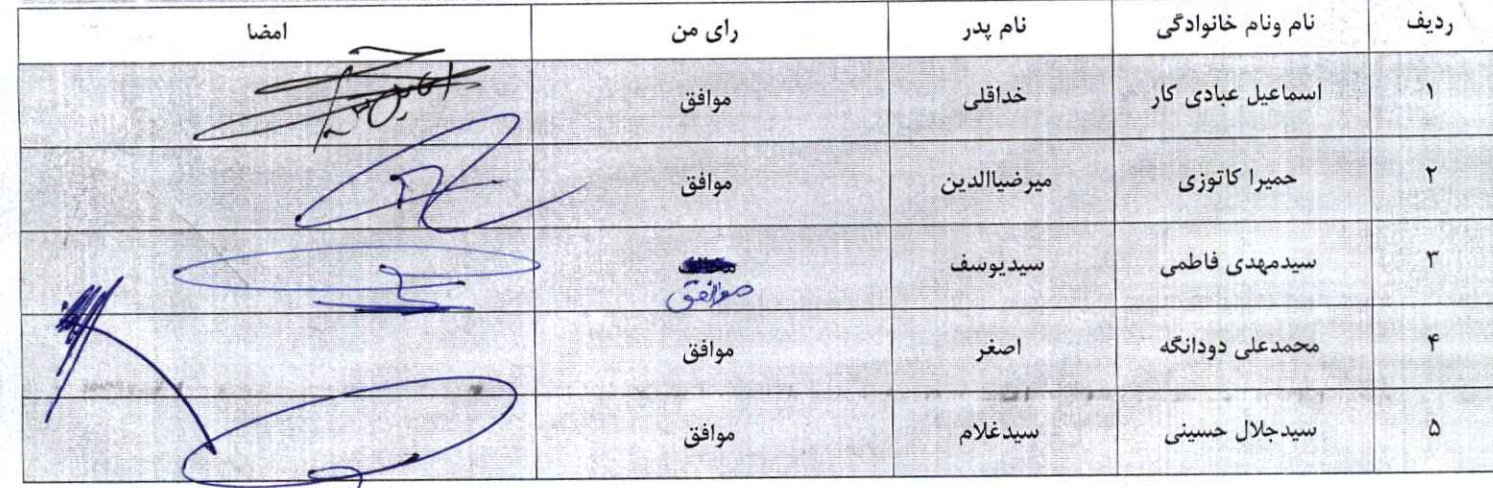 ردیف نام ونام خانوادگی نام پدر رای من امضا
۱ اسماعیل عبادی کار خداقلی موافق
۲ حمیرا کاتوزی میرضیاالدین موافق
۳ سیدمهدی فاطمی سیدیوسف مخالف
موافق
۴ محمدعلی دودانگه اصغر موافق
۵ سیدجلال حسینی سیدغلام موافق